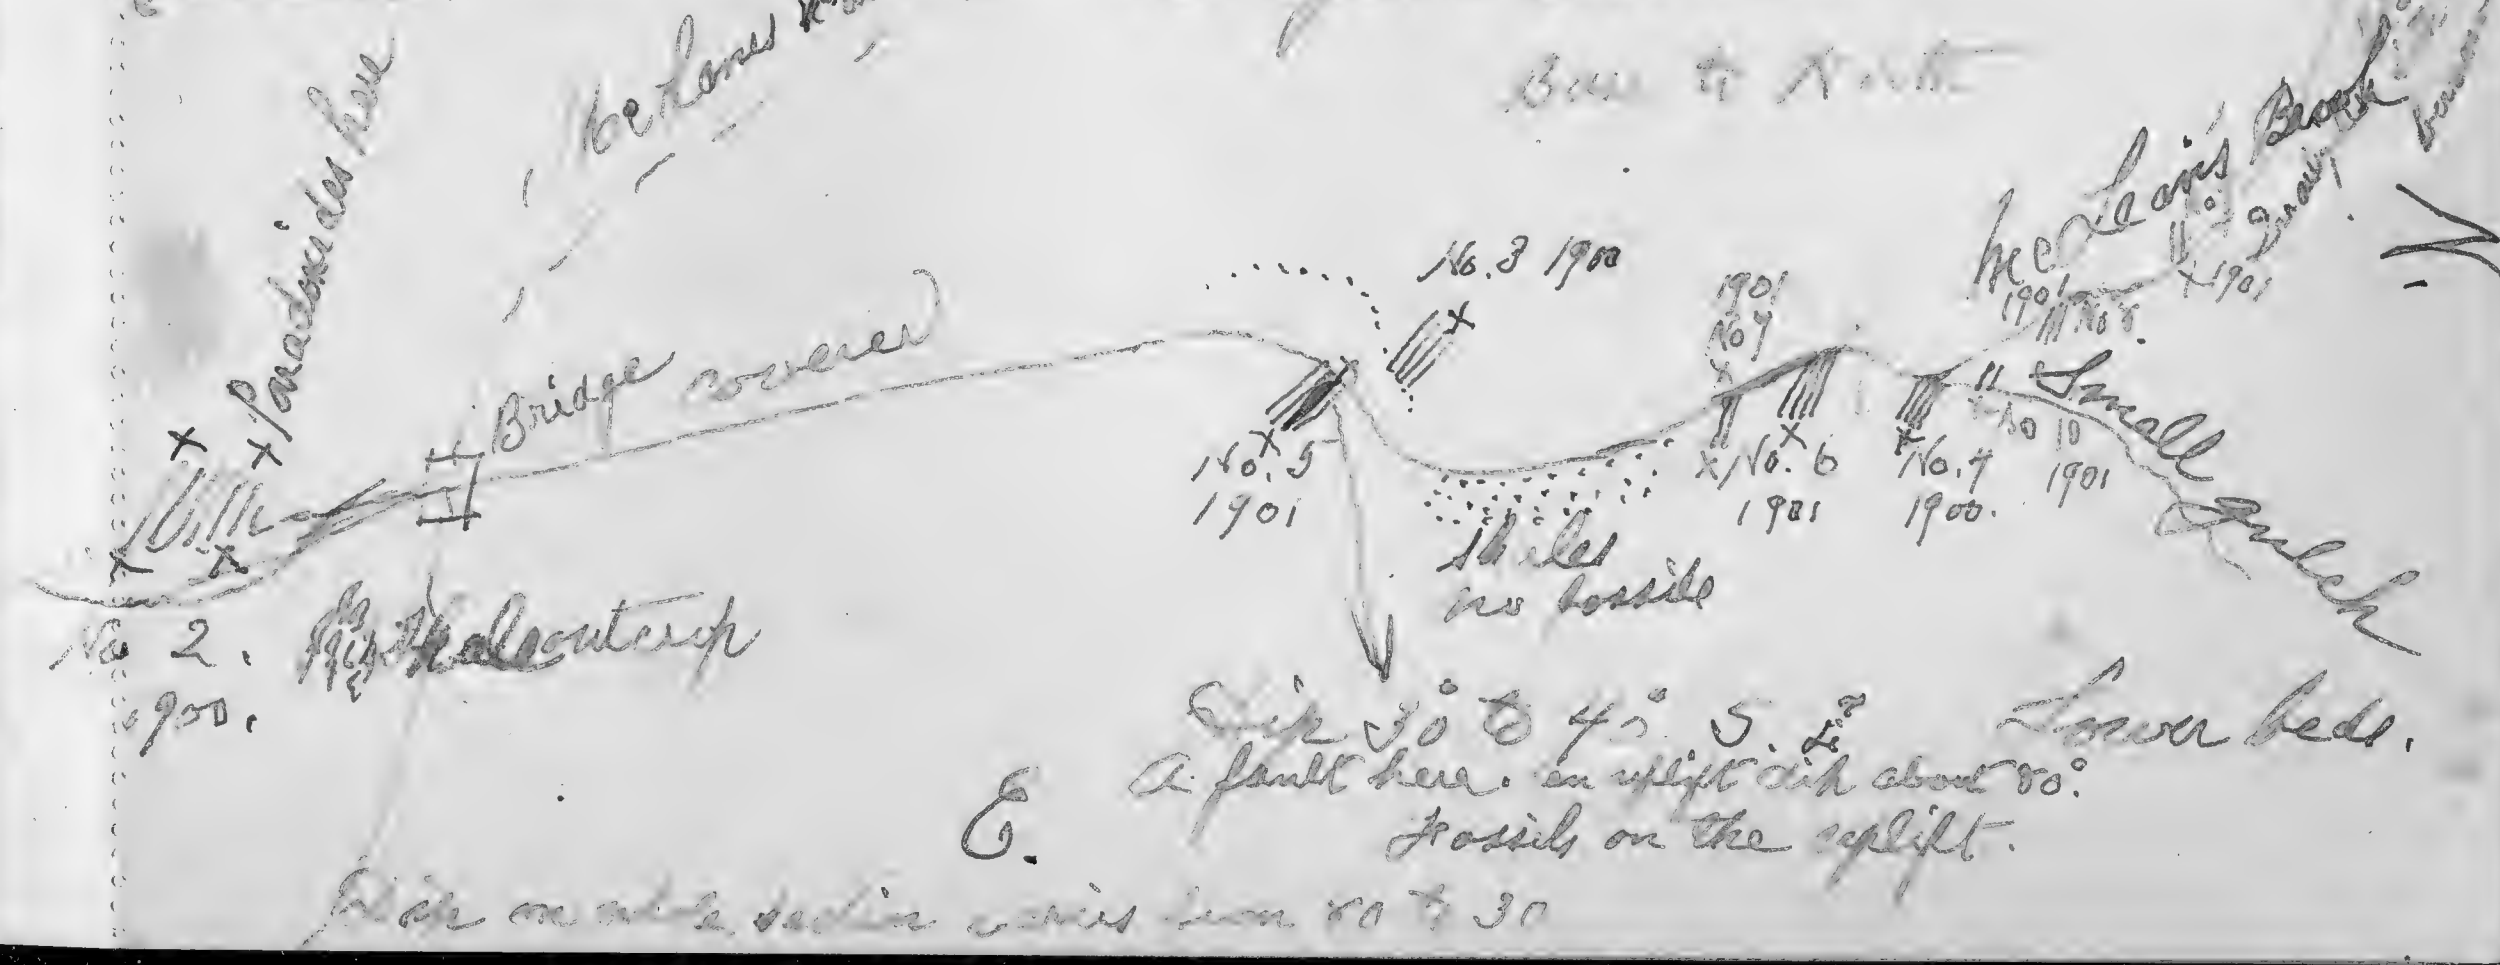 Base to North
Paradoxides here
McLean's Brook
No. 3 1900
1901
No 7
1901
No 8.
x 1901
Bridge
Small Gulch
No. 5
1901
x No. 6
1901
No. 4
1900.
No 10
1901
shales
no fossils
No 2.
1900.
outcrop
Dip 30° to 45° S. E.
Lower beds.
A fault here. an uplift dip about 80°.
Fossils on the uplift.
E.
Dip on whole section varies from 80 to 30